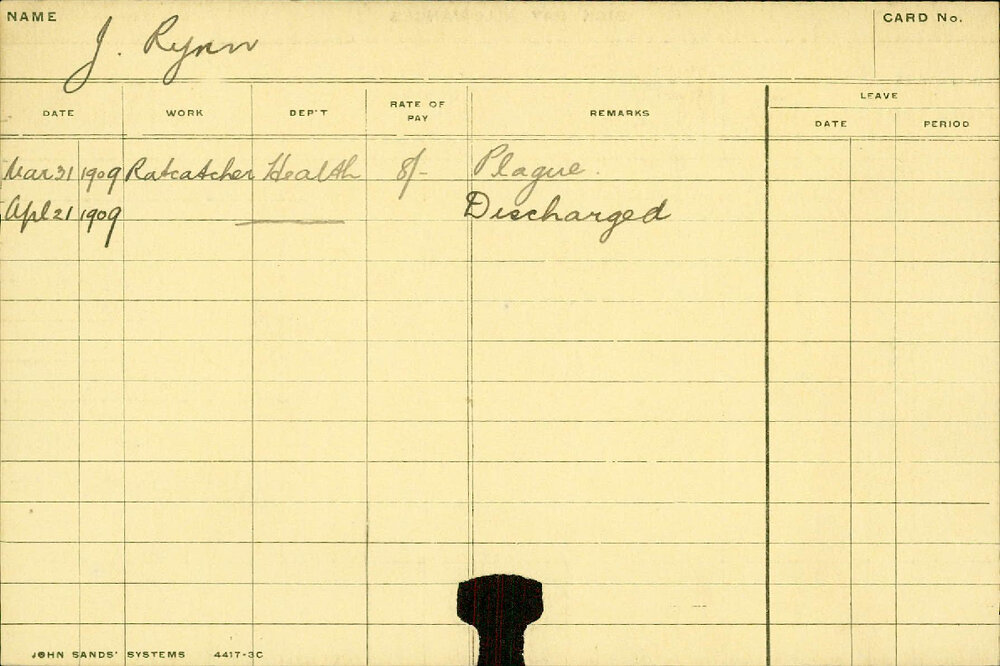 NAME J. Rynn CARD No.
DATE WORK DEP'T RATE OF PAY REMARKS LEAVE
DATE PERIOD
Mar 31 1909 Ratcatcher Health 8/- Plague.
Apl 21 1909 Discharged
JOHN SANDS' SYSTEMS 4417-3C